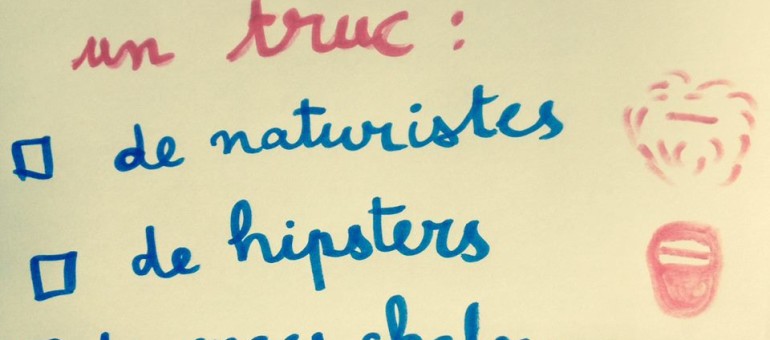 un truc :
de naturistes
de hipsters